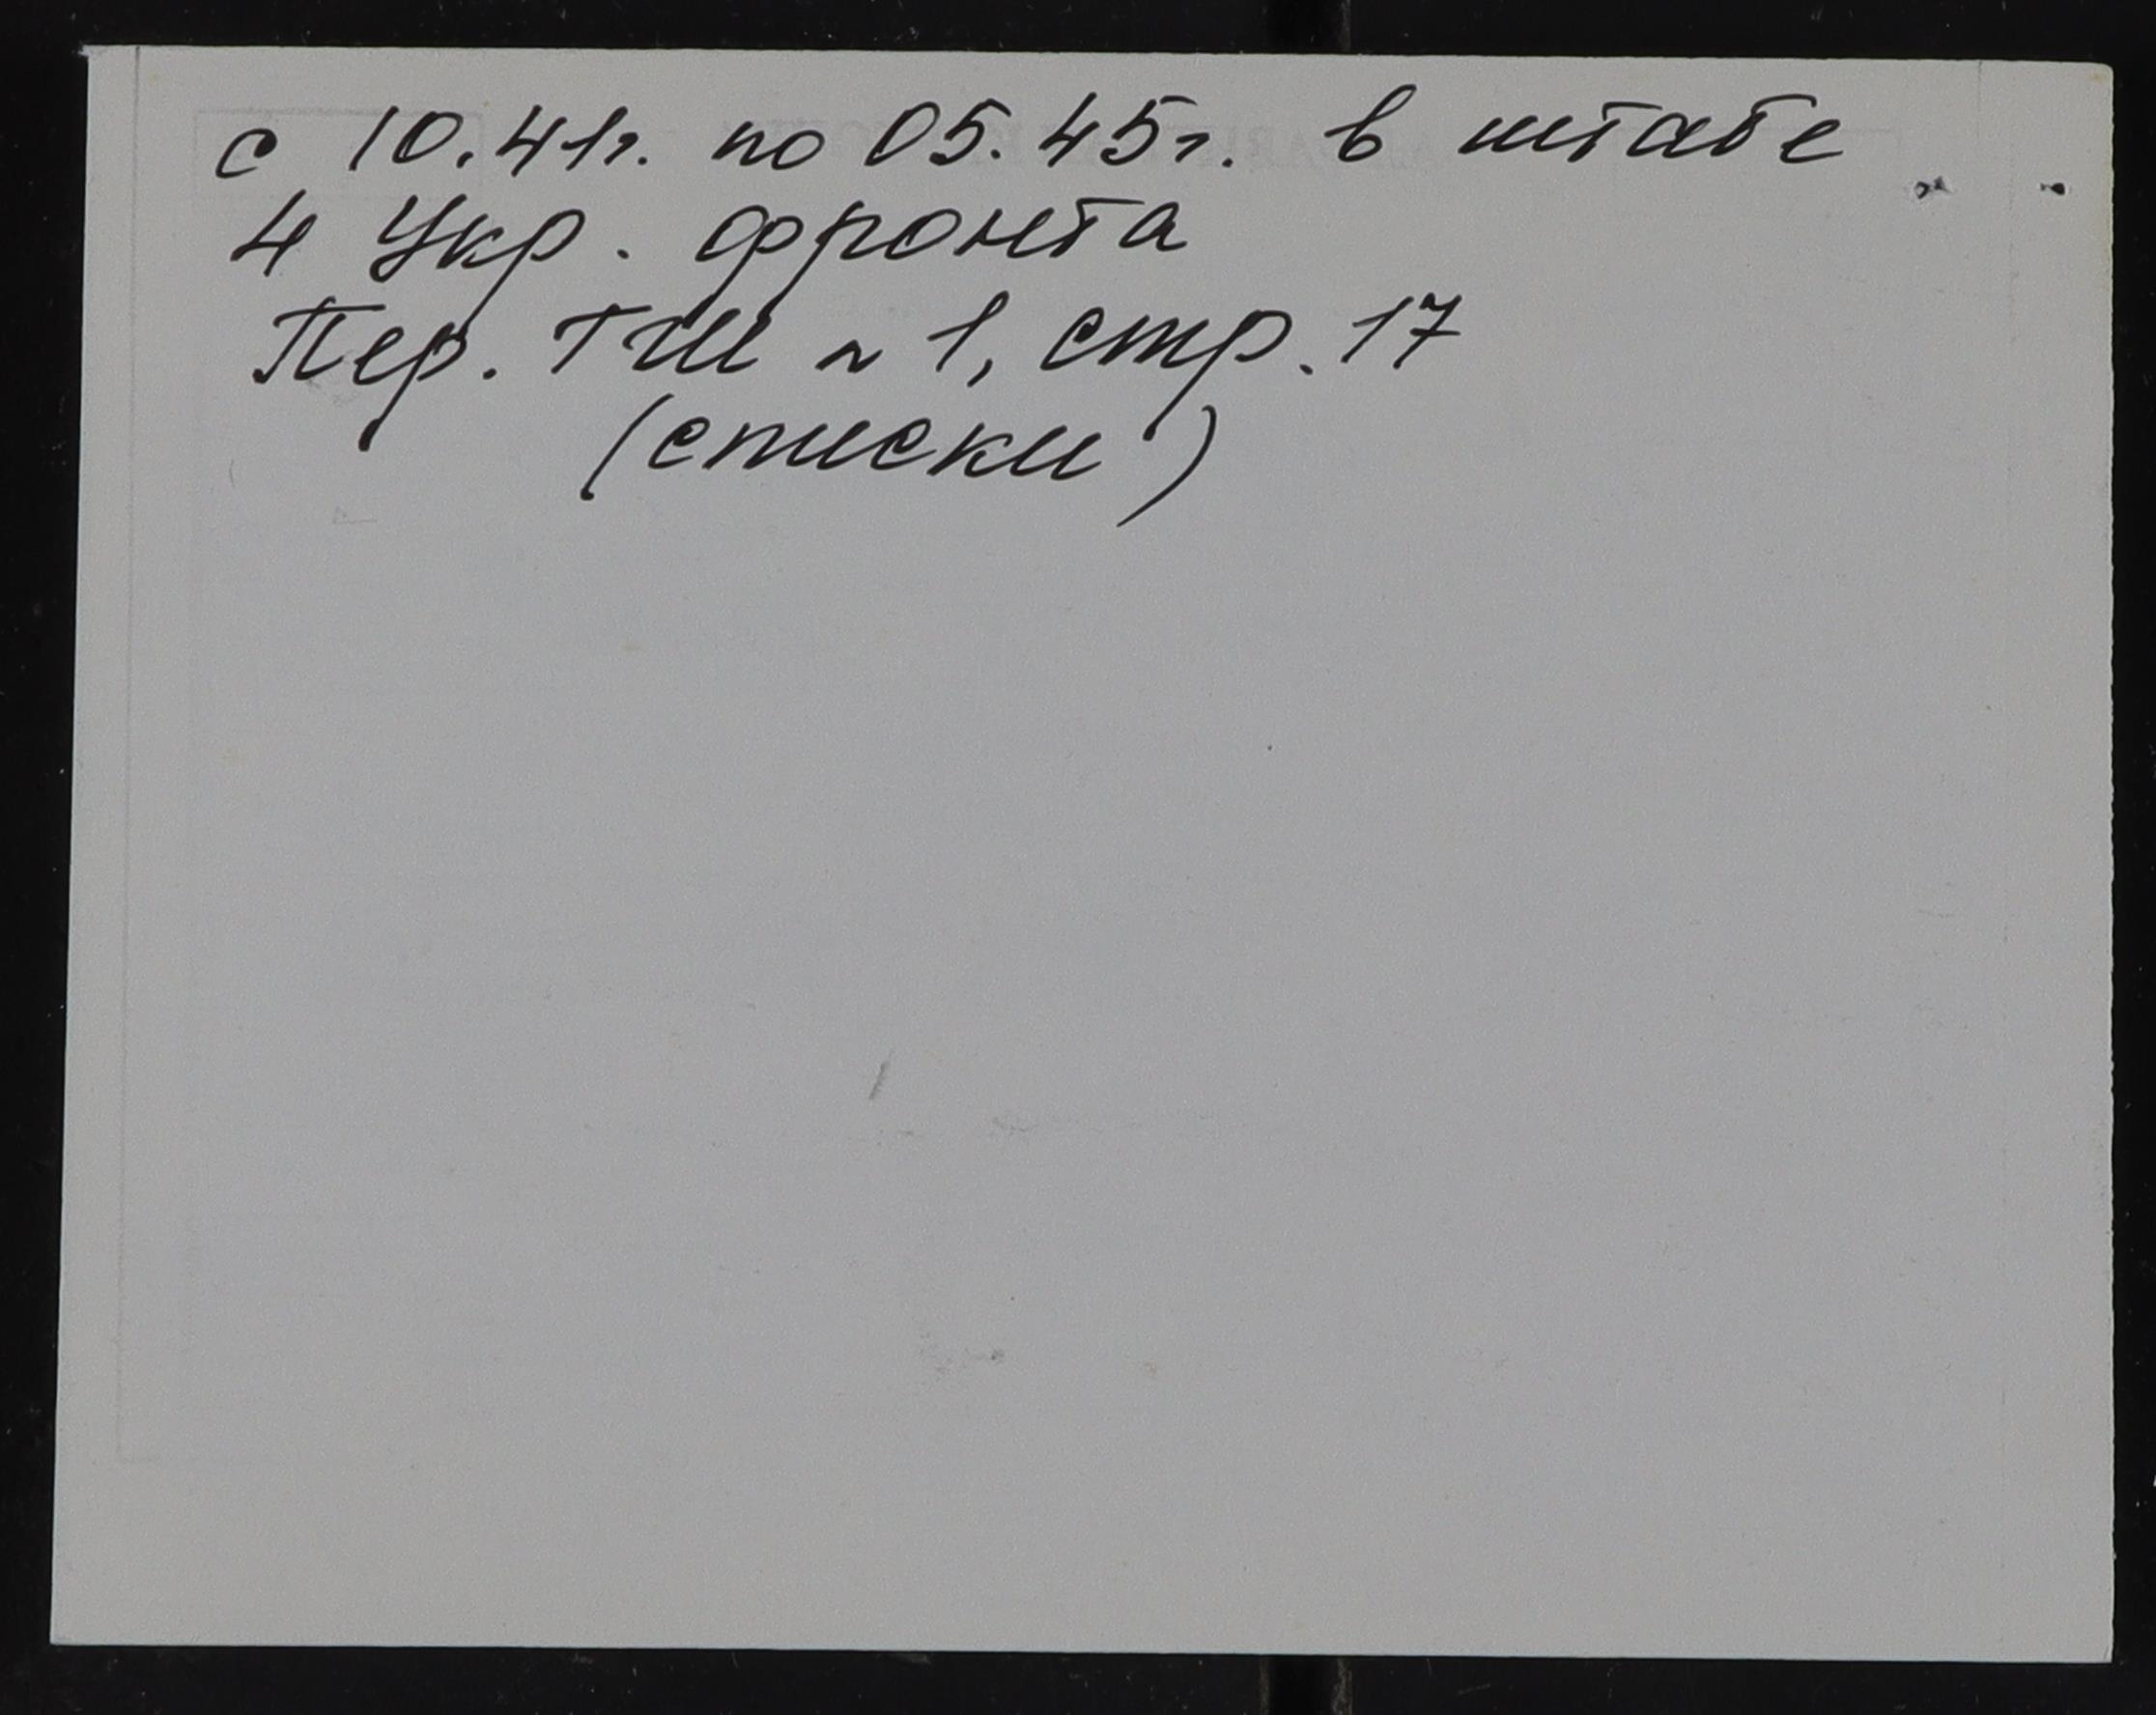 с 10.41г. по 05.45г. в штабе
4 Укр. фронта
Пер. ГШ № 1, стр. 17
(списки)